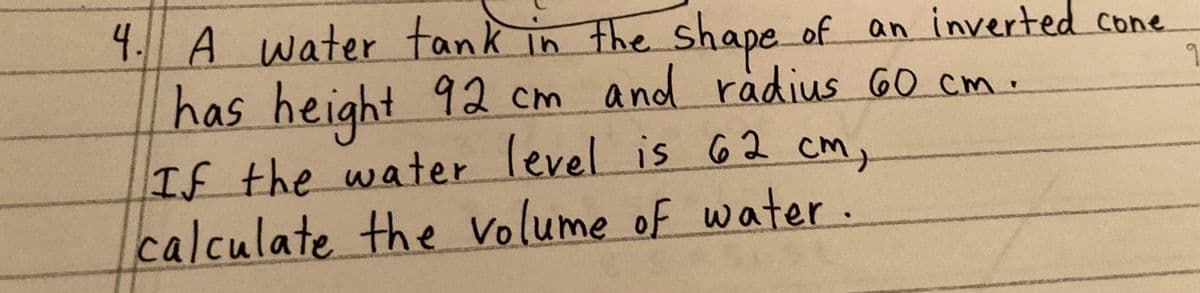 4. A water tank in the shape of an inverted cone
has height 92 cm and radius 60 cm.
If the water level is 62 cm,
calculate the volume of water.